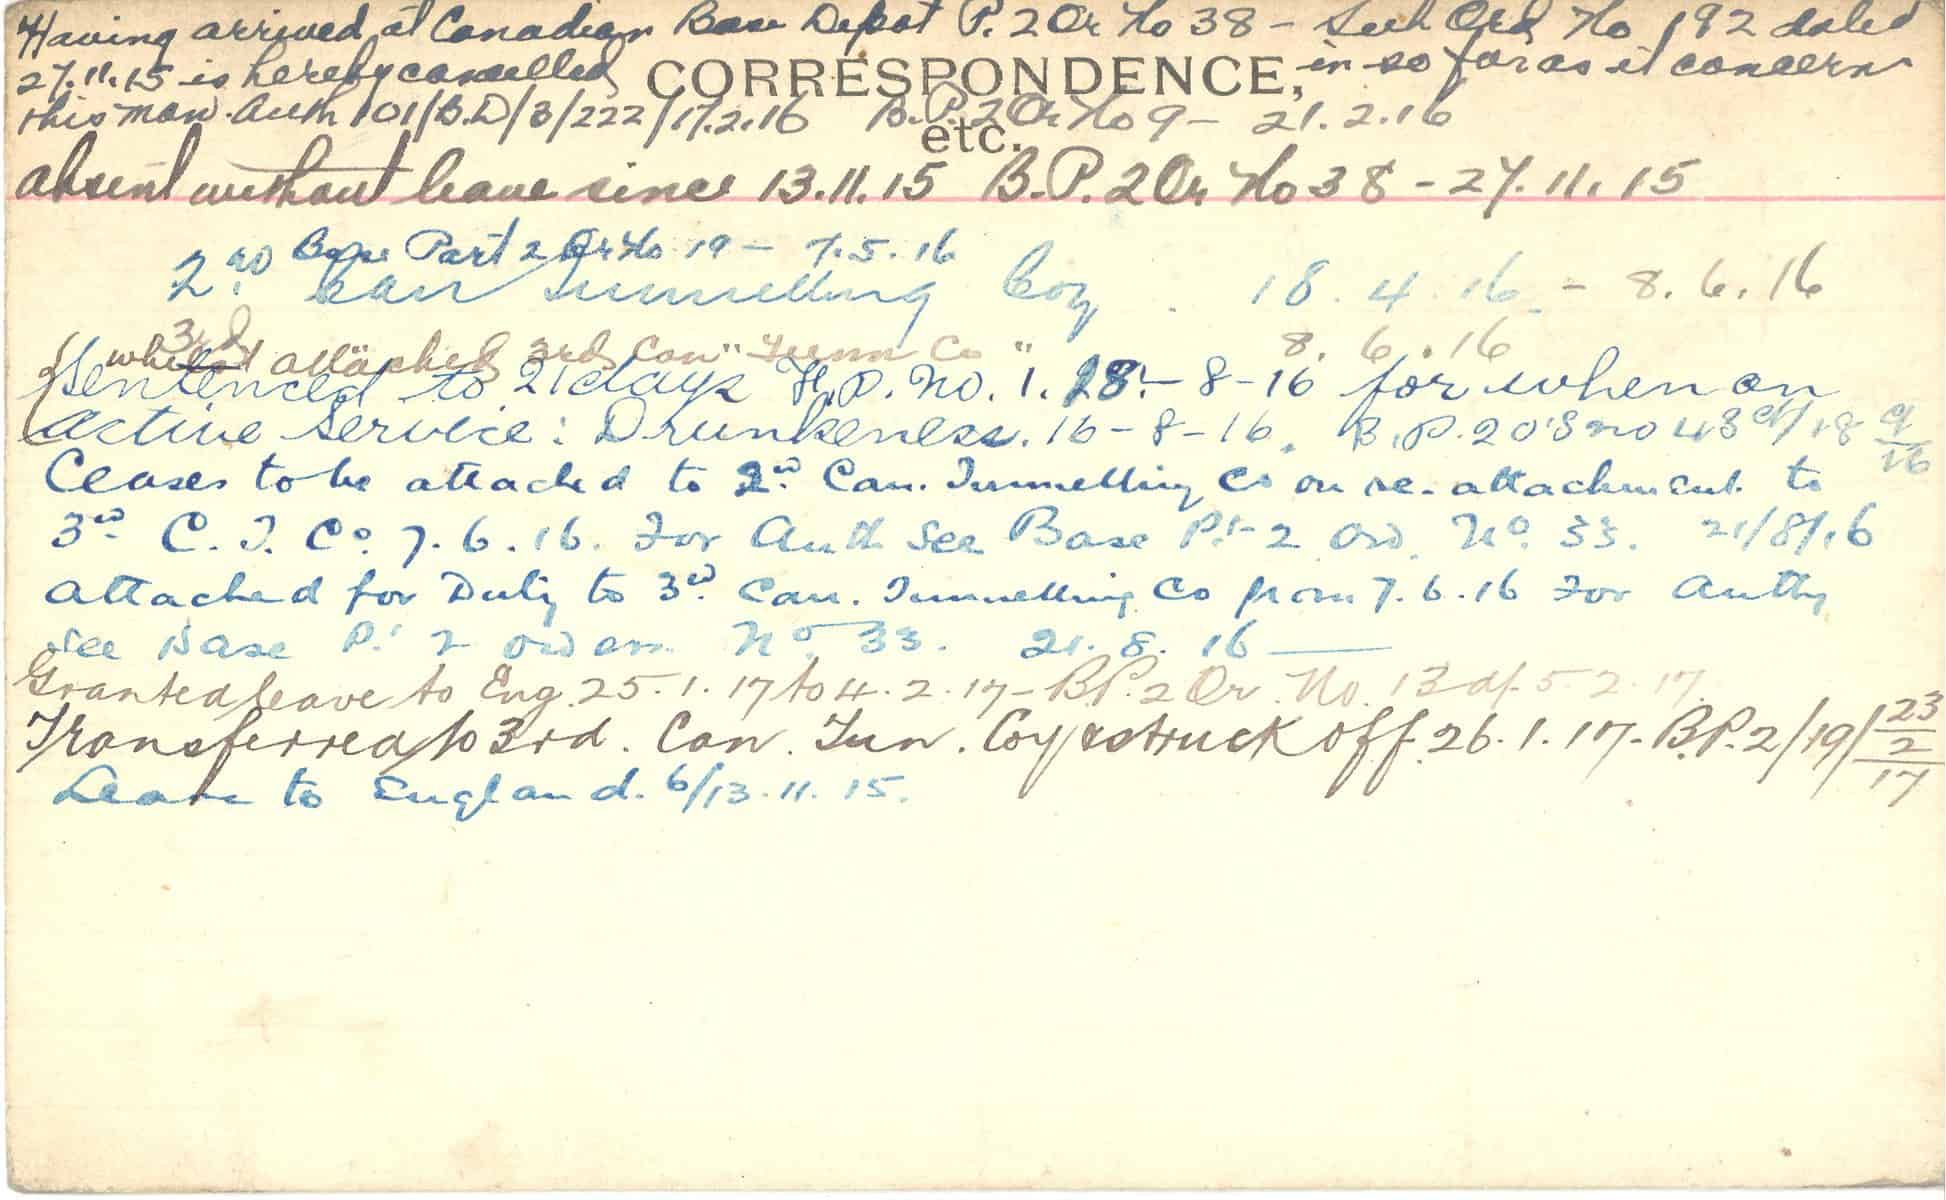 Having arrived at Canadian Base Depot P. 2 Or No 38 - Sub Ord No 192 dated
27.11.15 is hereby cancelled in so far as it concerns
CORRESPONDENCE,
this man. Auth 101/B.D/3/222/17.2.16 B.P. 2 Or No 9 - 21.2.16
etc.
Absent without leave since 13.11.15 B.P. 2 Or No 38 - 27.11.15
Base Part 2 Or No 19 - 7.5.16
2nd Can Tunnelling Coy. 18.4.16 - 8.6.16
3rd " " 8.6.16
whilst attached 3rd Can Tunn Co
Sentenced to 21 days F.P. No. 1. 28-8-16 for when on
Active Service: Drunkeness. 16-8-16. B.P. 2 O's no 43 d/18 9/16
Ceases to be attached to 2nd Can. Tunnelling Co on re-attachment to
3rd C.T. Co. 7.6.16. For Auth See Base Pt 2 Ord. No. 33. 21/8/16
Attached for Duty to 3rd Can. Tunnelling Co from 7.6.16 For Authy
See Base Pt 2 Orders No. 33. 21.8.16
Granted leave to Eng. 25.1.17 to 4.2.17 - B.P. 2 Or. No. 13 d/ 5.2.17
Transferred to 3rd. Can. Tun. Coy & struck off 26.1.17. B.P. 2/19/23/2/17
Leave to England. 6/13.11.15.